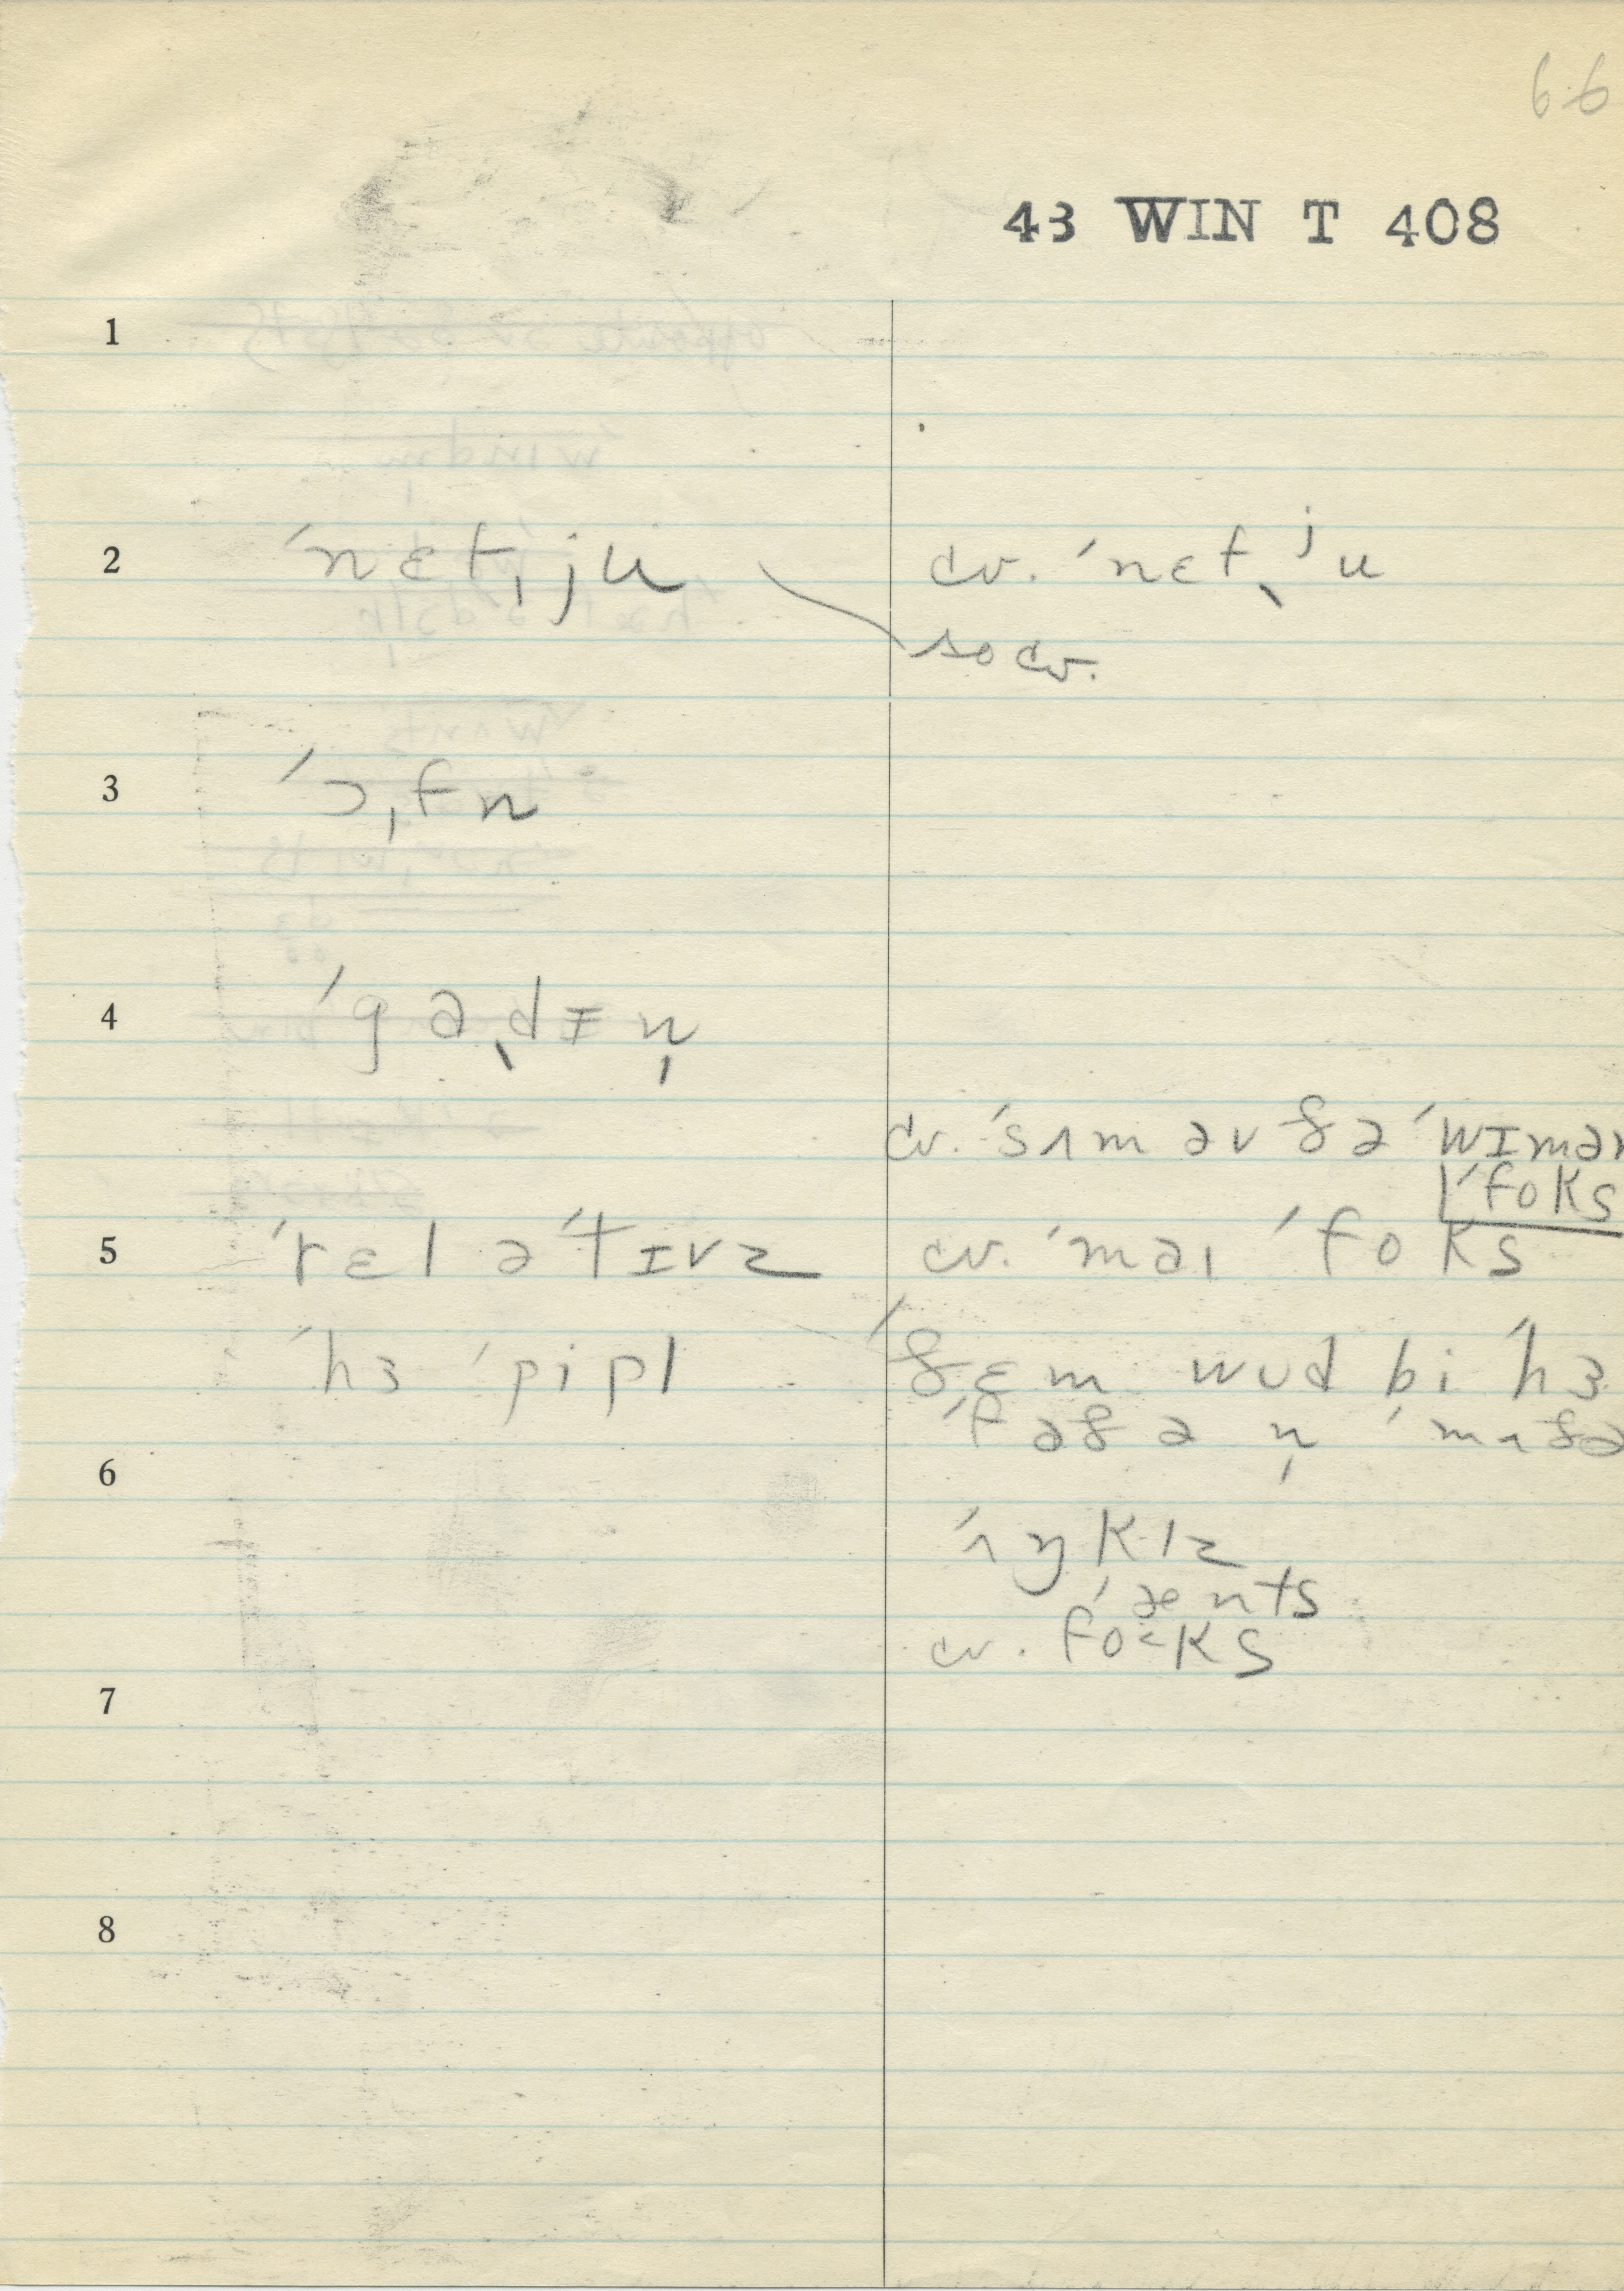 66
43 WIN T 408
1
2 ˈnɛt̩ju cv. ˈnɛt̩ʲu
so cv.
3 ˈɔ̩fn
4 ˈga̩dɪn̩
cv. ˈsʌm əv ðə ˈwɪmən
ˈfoks
5 ˈrɛləˈtɪvz cv. ˈmaɪ ˈfoks
ˈhɜ ˈpipl ˈðɛm wud bi ˈhɜ
ˈfaðə n̩ ˈmʌðə
6
ˈʌŋklz
ˈænts
cv. fo˂ks
7
8